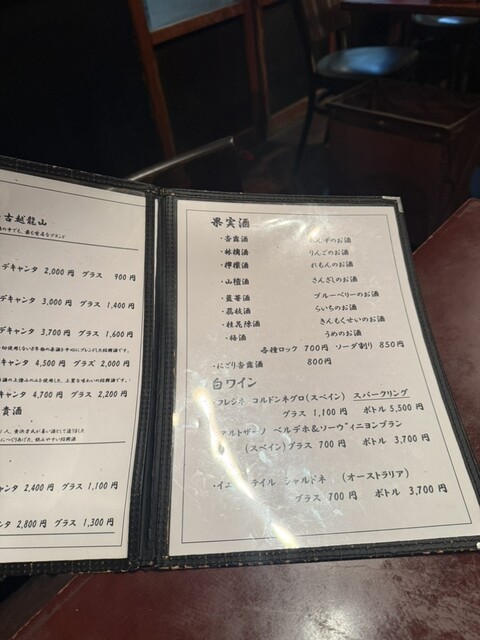 古越龍山
デキャンタ 2,000円 グラス 900円
デキャンタ 3,000円 グラス 1,400円
デキャンタ 3,700円 グラス 1,600円
キャンタ 4,500円 グラス 2,000円
キャンタ 4,700円 グラス 2,200円
貴酒
キャンタ 2,400円 グラス 1,100円
ンタ 2,800円 グラス 1,300円
果実酒
・杏露酒 んずのお酒
・林檎酒 りんごのお酒
・檸檬酒 れもんのお酒
・山樝酒 さんざしのお酒
・藍苺酒 ブルーベリーのお酒
・茘枝酒 らいちのお酒
・桂花陳酒 きんもくせいのお酒
・梅酒 うめのお酒
各種ロック 700円 ソーダ割り 850円
・にごり杏露酒 800円
白ワイン
・フレシネ コルドンネグロ(スペイン) スパークリング
グラス 1,100円 ボトル 5,500円
アルトザーノ ベルデホ&ソーヴィニヨンブラン
(スペイン) グラス 700円 ボトル 3,700円
・イエ テイル シャルドネ (オーストラリア)
グラス 700円 ボトル 3,700円